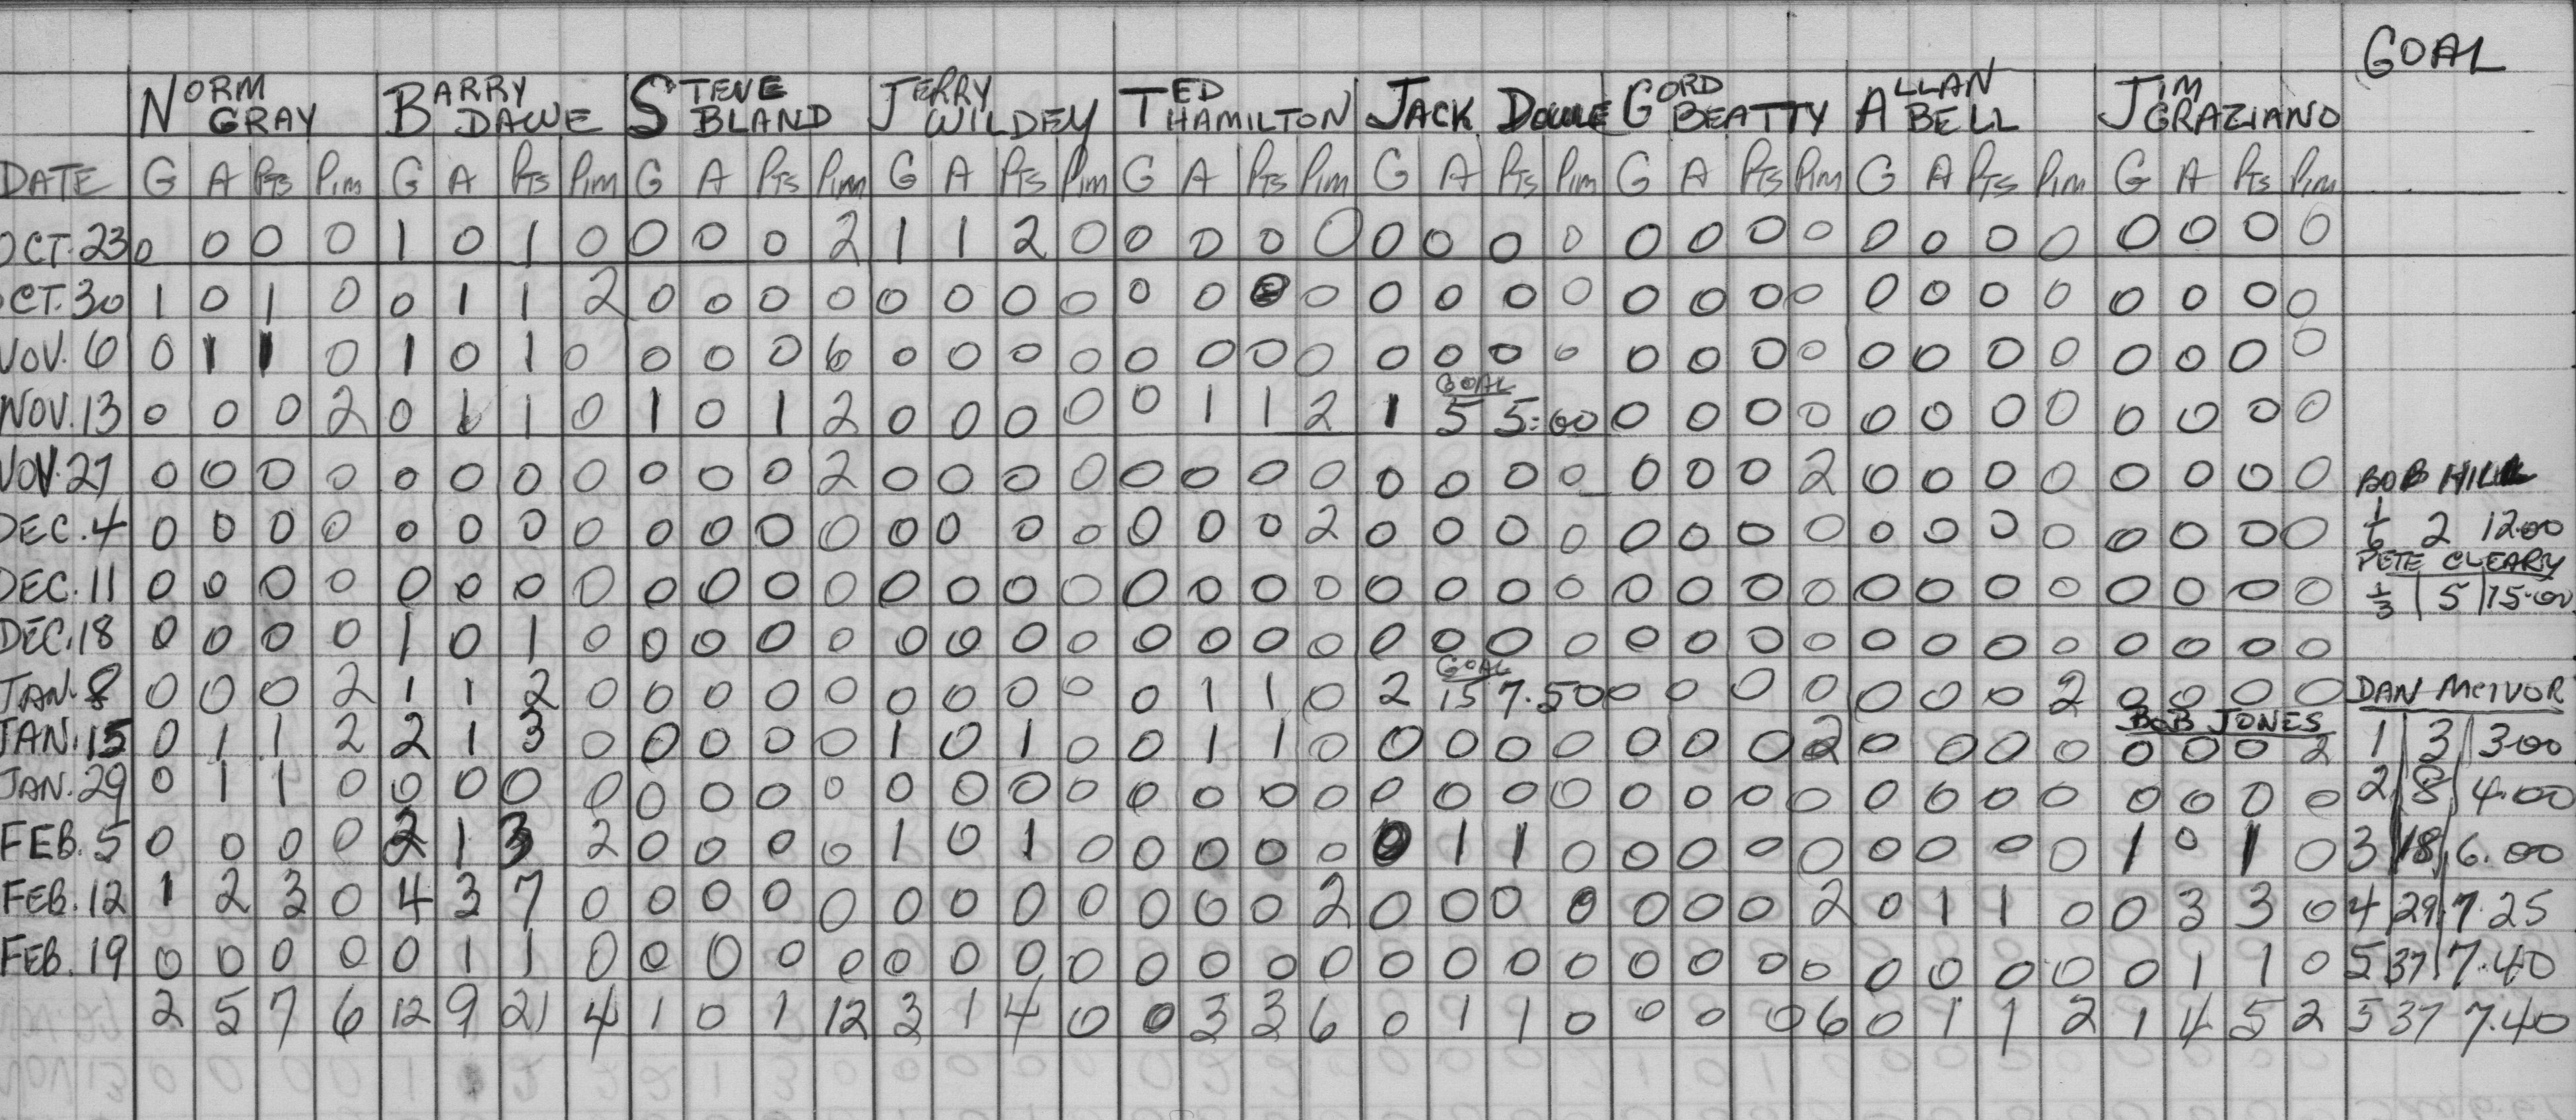 GOAL
NORM GRAY BARRY DAWE STEVE BLAND JERRY WILDEY TED HAMILTON JACK DOWLE GORD BEATTY ALLAN BELL JIM GRAZIANO
DATE G A PTS PIM G A PTS PIM G A PTS PIM G A PTS PIM G A PTS PIM G A PTS PIM G A PTS PIM G A PTS PIM G A PTS PIM
OCT. 23 0 0 0 0 1 0 1 0 0 0 0 2 1 1 2 0 0 0 0 0 0 0 0 0 0 0 0 0 0 0 0 0 0 0 0 0
OCT. 30 1 0 1 0 0 1 1 2 0 0 0 0 0 0 0 0 0 0 0 0 0 0 0 0 0 0 0 0 0 0 0 0 0 0 0 0
NOV. 6 0 1 1 0 1 0 1 0 0 0 0 6 0 0 0 0 0 0 0 0 0 0 0 0 0 0 0 0 0 0 0 0 0 0 0 0
GOAL
NOV. 13 0 0 0 2 0 1 1 0 1 0 1 2 0 0 0 0 0 1 1 2 1 5 5.00 0 0 0 0 0 0 0 0 0 0 0 0
NOV. 27 0 0 0 0 0 0 0 0 0 0 0 2 0 0 0 0 0 0 0 0 0 0 0 0 0 0 0 2 0 0 0 0 0 0 0 0 BOB HILL
DEC. 4 0 0 0 0 0 0 0 0 0 0 0 0 0 0 0 0 0 0 0 2 0 0 0 0 0 0 0 0 0 0 0 0 0 0 0 0 1/6 2 12.00
PETE CLEARY
DEC. 11 0 0 0 0 0 0 0 0 0 0 0 0 0 0 0 0 0 0 0 0 0 0 0 0 0 0 0 0 0 0 0 0 0 0 0 0 1/3 5 15.00
DEC. 18 0 0 0 0 1 0 1 0 0 0 0 0 0 0 0 0 0 0 0 0 0 0 0 0 0 0 0 0 0 0 0 0 0 0 0 0
GOAL
JAN. 8 0 0 0 2 1 1 2 0 0 0 0 0 0 0 0 0 0 1 1 0 2 15 7.50 0 0 0 0 0 0 0 2 0 0 0 0 DAN MCIVOR
BOB JONES
JAN. 15 0 1 1 2 2 1 3 0 0 0 0 0 1 0 1 0 0 1 1 0 0 0 0 0 0 0 0 2 0 0 0 0 0 0 0 2 1 3 3.00
JAN. 29 0 1 1 0 0 0 0 0 0 0 0 0 0 0 0 0 0 0 0 0 0 0 0 0 0 0 0 0 0 0 0 0 0 0 0 0 2 8 4.00
FEB. 5 0 0 0 0 2 1 3 2 0 0 0 0 1 0 1 0 0 0 0 0 0 1 1 0 0 0 0 0 0 0 0 0 1 0 1 0 3 18 6.00
FEB. 12 1 2 3 0 4 3 7 0 0 0 0 0 0 0 0 0 0 0 0 2 0 0 0 0 0 0 0 2 0 1 1 0 0 3 3 0 4 29 7.25
FEB. 19 0 0 0 0 0 1 1 0 0 0 0 0 0 0 0 0 0 0 0 0 0 0 0 0 0 0 0 0 0 0 0 0 0 1 1 0 5 37 7.40
2 5 7 6 12 9 21 4 1 0 1 12 3 1 4 0 0 3 3 6 0 1 1 0 0 0 0 6 0 1 1 2 1 4 5 2 5 37 7.40